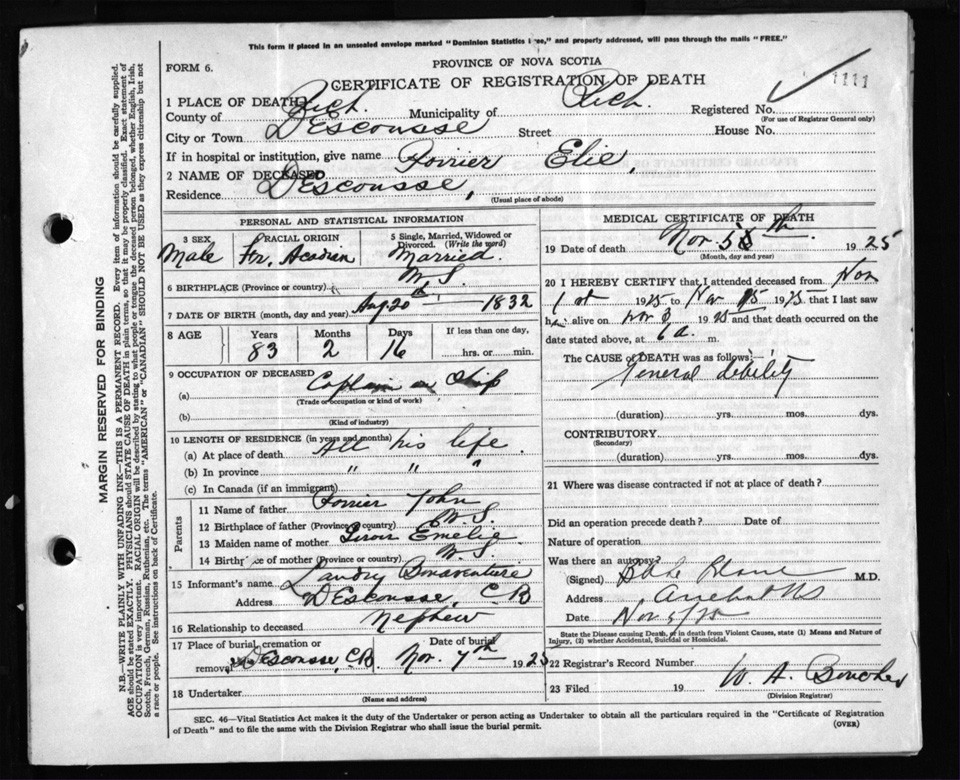 This form if placed in an unsealed envelope marked "Dominion Statistics Free," and properly addressed, will pass through the mails "FREE."
FORM 6.
PROVINCE OF NOVA SCOTIA
CERTIFICATE OF REGISTRATION OF DEATH
1111
1 PLACE OF DEATH
County of Rich. Municipality of Rich. Registered No.
(For use of Registrar General only)
City or Town DEscousse Street House No.
If in hospital or institution, give name
2 NAME OF DECEASED Poirier Elie,
Residence DEscousse,
(Usual place of abode)
PERSONAL AND STATISTICAL INFORMATION
3 SEX Male
RACIAL ORIGIN Fr. Acadien
5 Single, Married, Widowed or Divorced. (Write the word) Married.
6 BIRTHPLACE (Province or country) N.S.
7 DATE OF BIRTH (month, day and year) Aug 20th 1832
8 AGE Years 83 Months 2 Days 16 If less than one day, hrs. or min.
9 OCCUPATION OF DECEASED
(a) Captain on Ship
(Trade or occupation or kind of work)
(b)
(Kind of industry)
10 LENGTH OF RESIDENCE (in years and months)
(a) At place of death All his life.
(b) In province " " "
(c) In Canada (if an immigrant)
Parents
11 Name of father Poirier John
12 Birthplace of father (Province or country) N.S.
13 Maiden name of mother Emelie
14 Birthplace of mother (Province or country) N.S.
15 Informant's name Landry Bonaventure
Address DEscousse, C.B
16 Relationship to deceased Nephew
17 Place of burial, cremation or removal DEscousse C.B. Date of burial Nov. 7th 1925
18 Undertaker
(Name and address)
MEDICAL CERTIFICATE OF DEATH
19 Date of death Nov. 5th 1925
(Month, day and year)
20 I HEREBY CERTIFY that I attended deceased from Nov
1st 1925 to Nov 5 1925 that I last saw
h alive on Nov 3 1925 and that death occurred on the
date stated above, at 6 a. m.
The CAUSE of DEATH was as follows:
General debility
(duration) yrs. mos. dys.
CONTRIBUTORY
(Secondary)
(duration) yrs. mos. dys.
21 Where was disease contracted if not at place of death?
Did an operation precede death? Date of
Nature of operation
Was there an autopsy?
(Signed) M.D.
Address Arichat NS
Date Nov 5/25
State the Disease causing Death, or in death from Violent Causes, state (1) Means and Nature of Injury, (2) whether Accidental, Suicidal or Homicidal.
22 Registrar's Record Number
23 Filed 19 W. A. Boucher
(Division Registrar)
SEC. 46—Vital Statistics Act makes it the duty of the Undertaker or person acting as Undertaker to obtain all the particulars required in the "Certificate of Registration
of Death" and to file the same with the Division Registrar who shall issue the burial permit. (OVER)
MARGIN RESERVED FOR BINDING
N.B.—WRITE PLAINLY WITH UNFADING INK—THIS IS A PERMANENT RECORD. Every item of information should be carefully supplied.
AGE should be stated EXACTLY. PHYSICIANS should STATE CAUSE OF DEATH in plain terms, so that it may be properly classified. Exact statement of
OCCUPATION is very important. RACIAL ORIGIN will be described by stating to what people or tongue the deceased person belonged, whether English, Irish,
Scotch, French, German, Russian, Ruthenian, etc. The terms "AMERICAN" or "CANADIAN" SHOULD NOT BE USED as they express citizenship but not
a race or people. See instructions on back of Certificate.